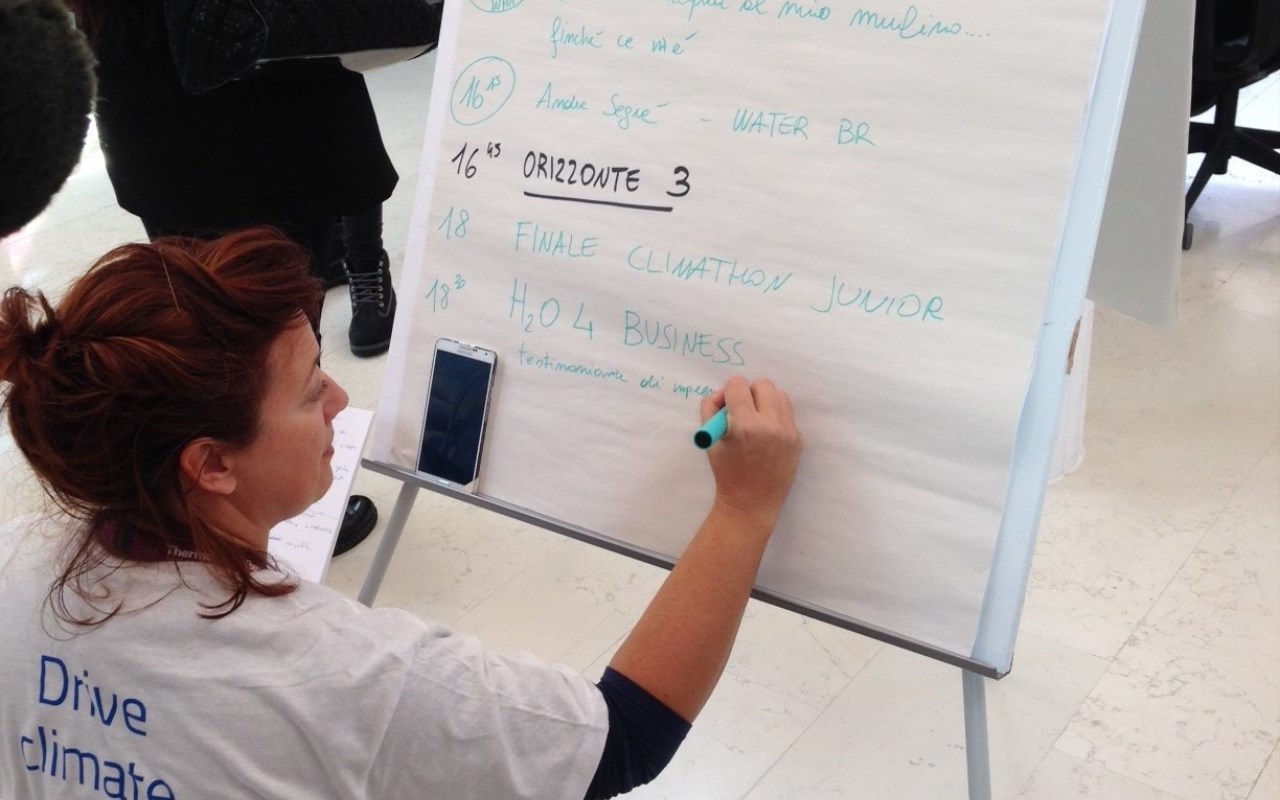 al mio mulino....
finché ce n'è
16 15 Andre Segré - WATER BR
16 45 ORIZZONTE 3
18 FINALE CLIMATHON JUNIOR
18 30 H2O 4 BUSINESS
testimonianze di
Drive
climate